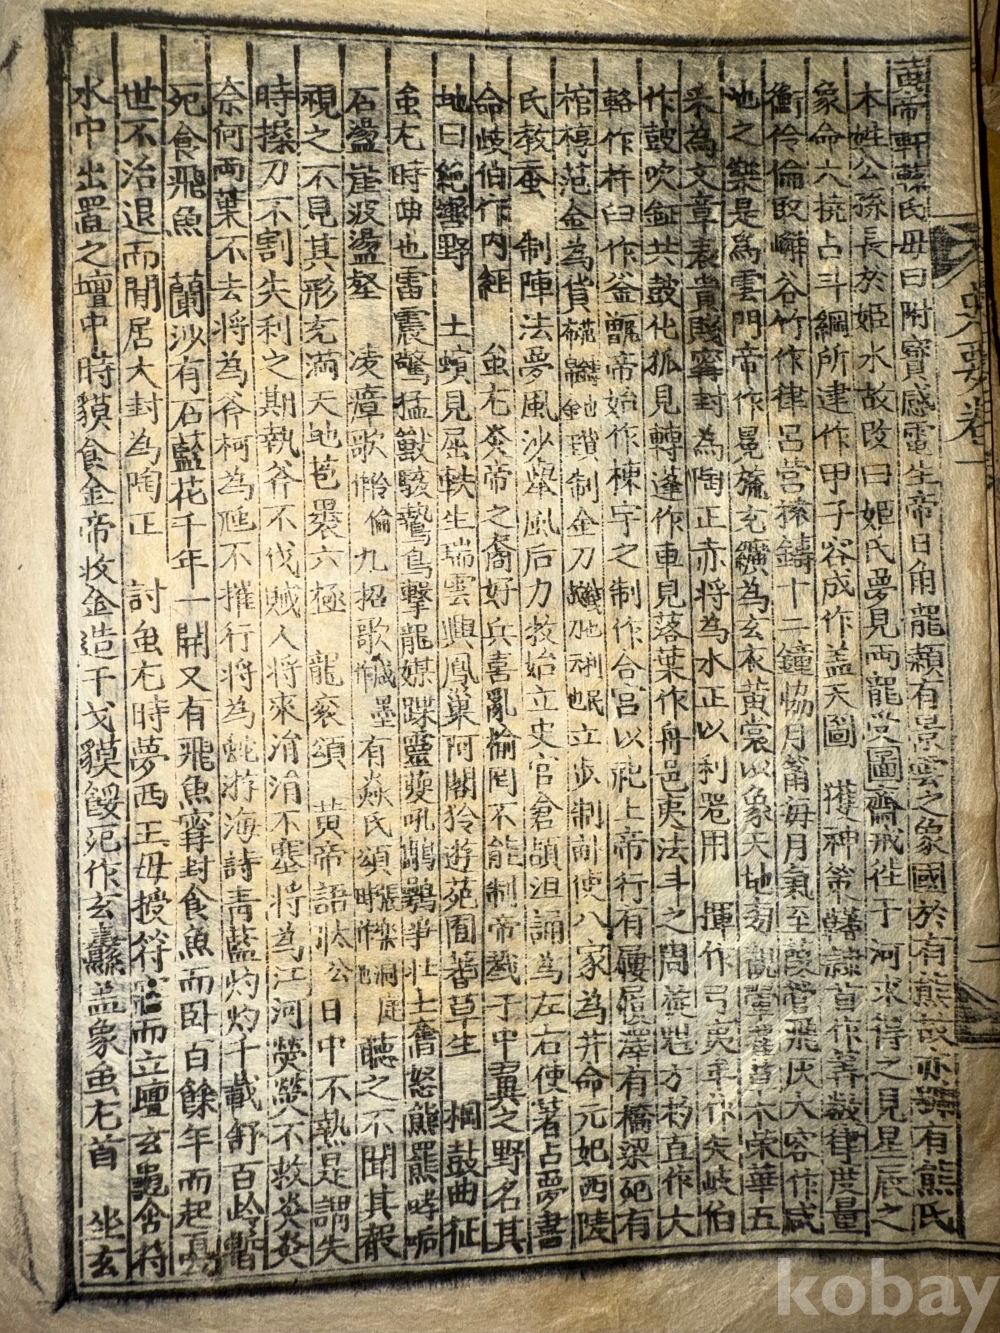 黄帝軒轅氏母曰附寶感電生帝日角龍顏有景雲之象國於有熊故亦號有熊氏
本姓公孫長於姬水故改曰姬氏夢見兩龍受圖齋戒往于河求得之見星辰之
象命六撓占斗綱所建作甲子容成作盖天圖 獲神策隷首作筭數律度量
衡伶倫取嶰谷竹作律呂營援鑄十二鐘協月筩每月氣至葭管飛灰大容作咸
池之樂是爲雲門帝作冕旒充纊為玄衣黃裳以象天地旁觀翬翟草木榮華五
采為文章表貴賤寗封為陶正赤將為水正以利器用 揮作弓夷牟作矢岐伯
作鼓吹鉦共鼓化狐見轉蓬作車見落葉作舟邑夷法斗之周旋魁方杓直作大
輅作杵臼作釜甑帝始作棟宇之制作合宮以祀上帝行有屨履澤有橋梁死有
棺槨范金為貨 制金刀 立步制畝使八家為井命元妃西陵
氏教蚕 制陣法夢風沙舉風后力牧始立史官倉頡沮誦為左右使著占夢書
命歧伯作内經 蚩尤炎帝之裔好兵喜亂榆罔不能制帝戮于中冀之野名其
地曰絶轡野 土螾見屈軼生瑞雲興鳳巢阿閣狑遊苑囿蓍草生 棡鼓曲征
蚩尤時曲也雷震驚猛獸駭鷙鳥擊龍媒蹀靈夔吼鵰鶚爭壯士奮怒熊羆哮㖃
石盪崖波盪壑 凌瘴歌伶倫九招歌鹹墨有焱氏頌 聽之不聞其聲
視之不見其形充滿天地苞裹六極 龍衮頌 黄帝語 公日中不熱是謂失
時操刀不割失利之期執斧不伐賊人將來涓涓不塞將為江河熒熒不救炎炎
奈何兩葉不去将為斧柯為虺不摧行将為蛇游海詩青藍灼灼千載舒百齡暫
死食飛魚 蘭沙有石藍花千年一開又有飛魚寗封食魚而卧百餘年而起
世不治退而閒居大封為陶正 討蚩尤時夢西王母授符寤而立壇玄龜含符
水中出置之壇中時貘食金帝收金造干戈貘餒死作玄纛盖象蚩尤首 坐玄
卷一
二
kobay